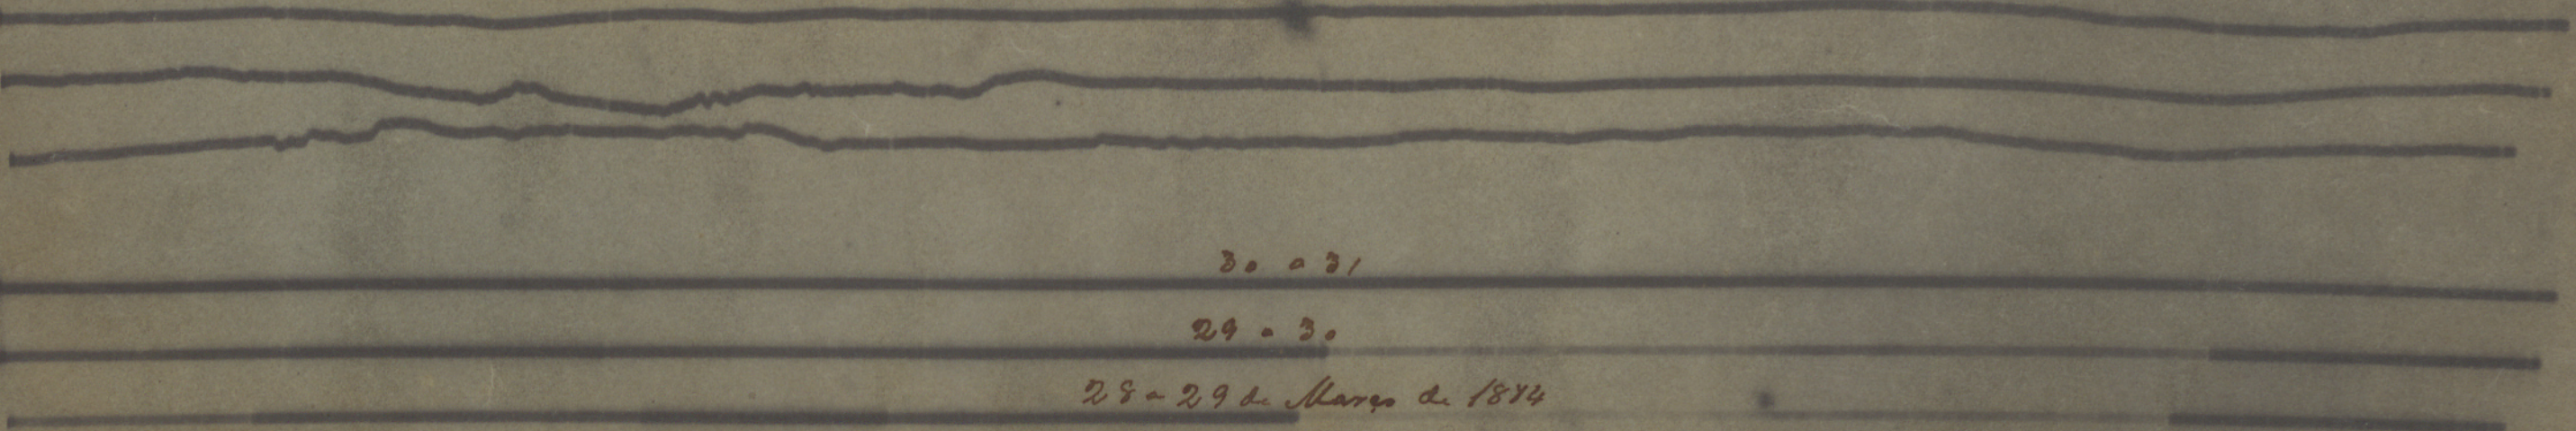 30 a 31
29 a 30
28 a 29 de Março de 1884